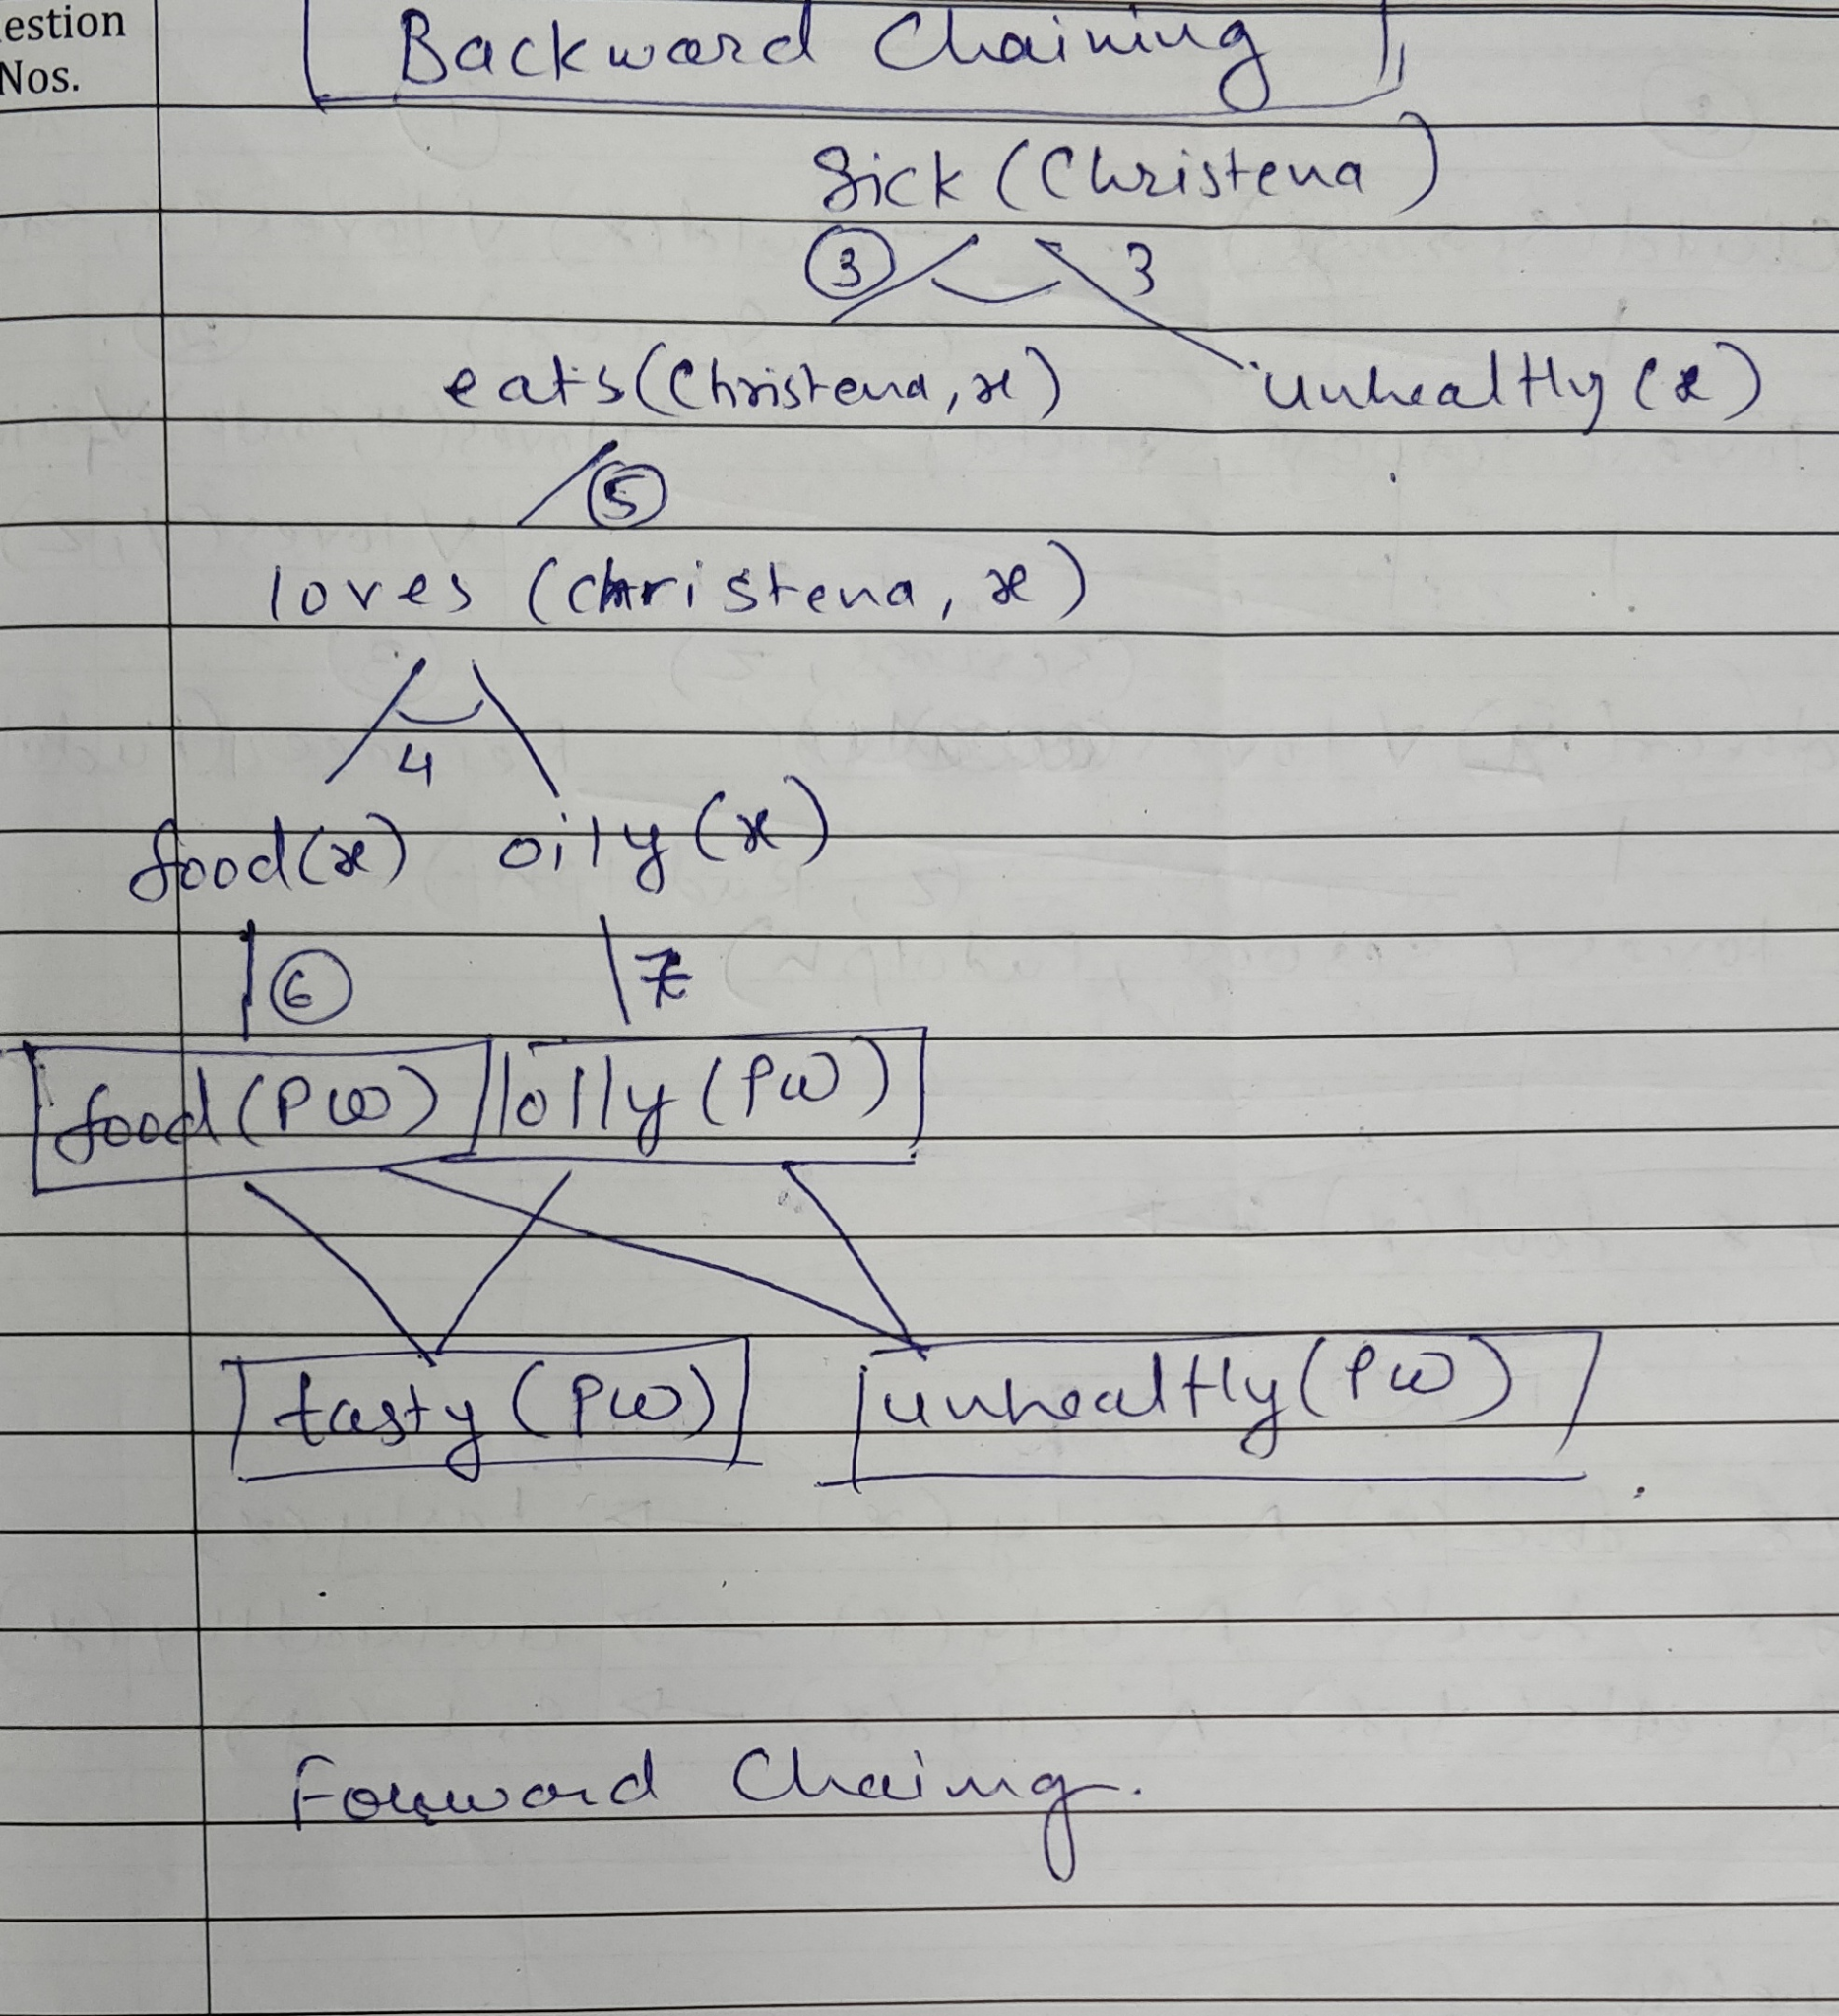 estion
Nos.
Backward Chaining
Sick (Christena)
3 3
eats(Christena, x) unhealthy (x)
5
loves (christena, x)
4
food(x) oily (x)
6 7
food (PW) oily (PW)
tasty (PW) unhealthy (PW)
Forward Chaing.